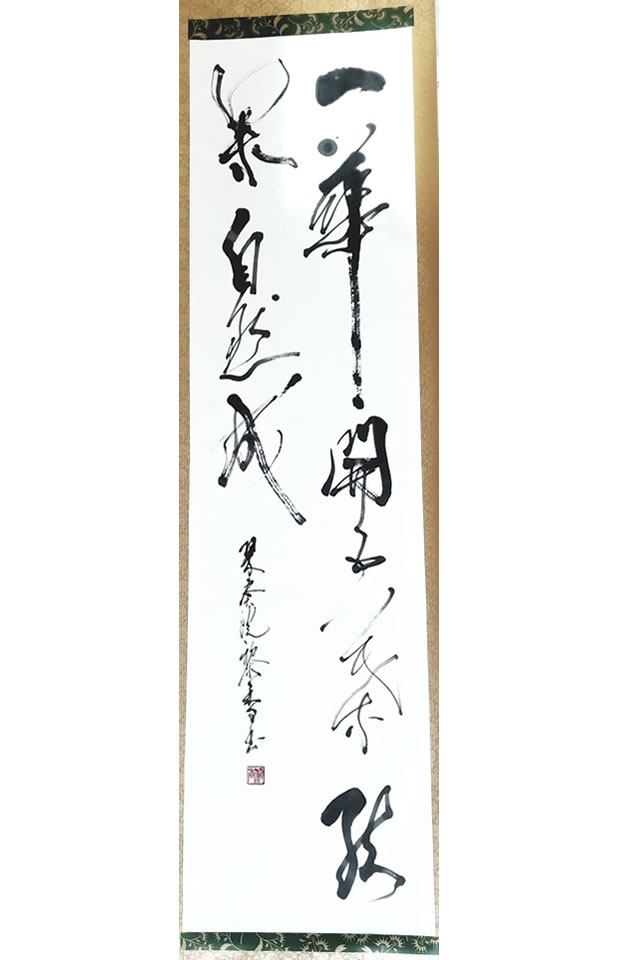 一華開五葉結
果自然成